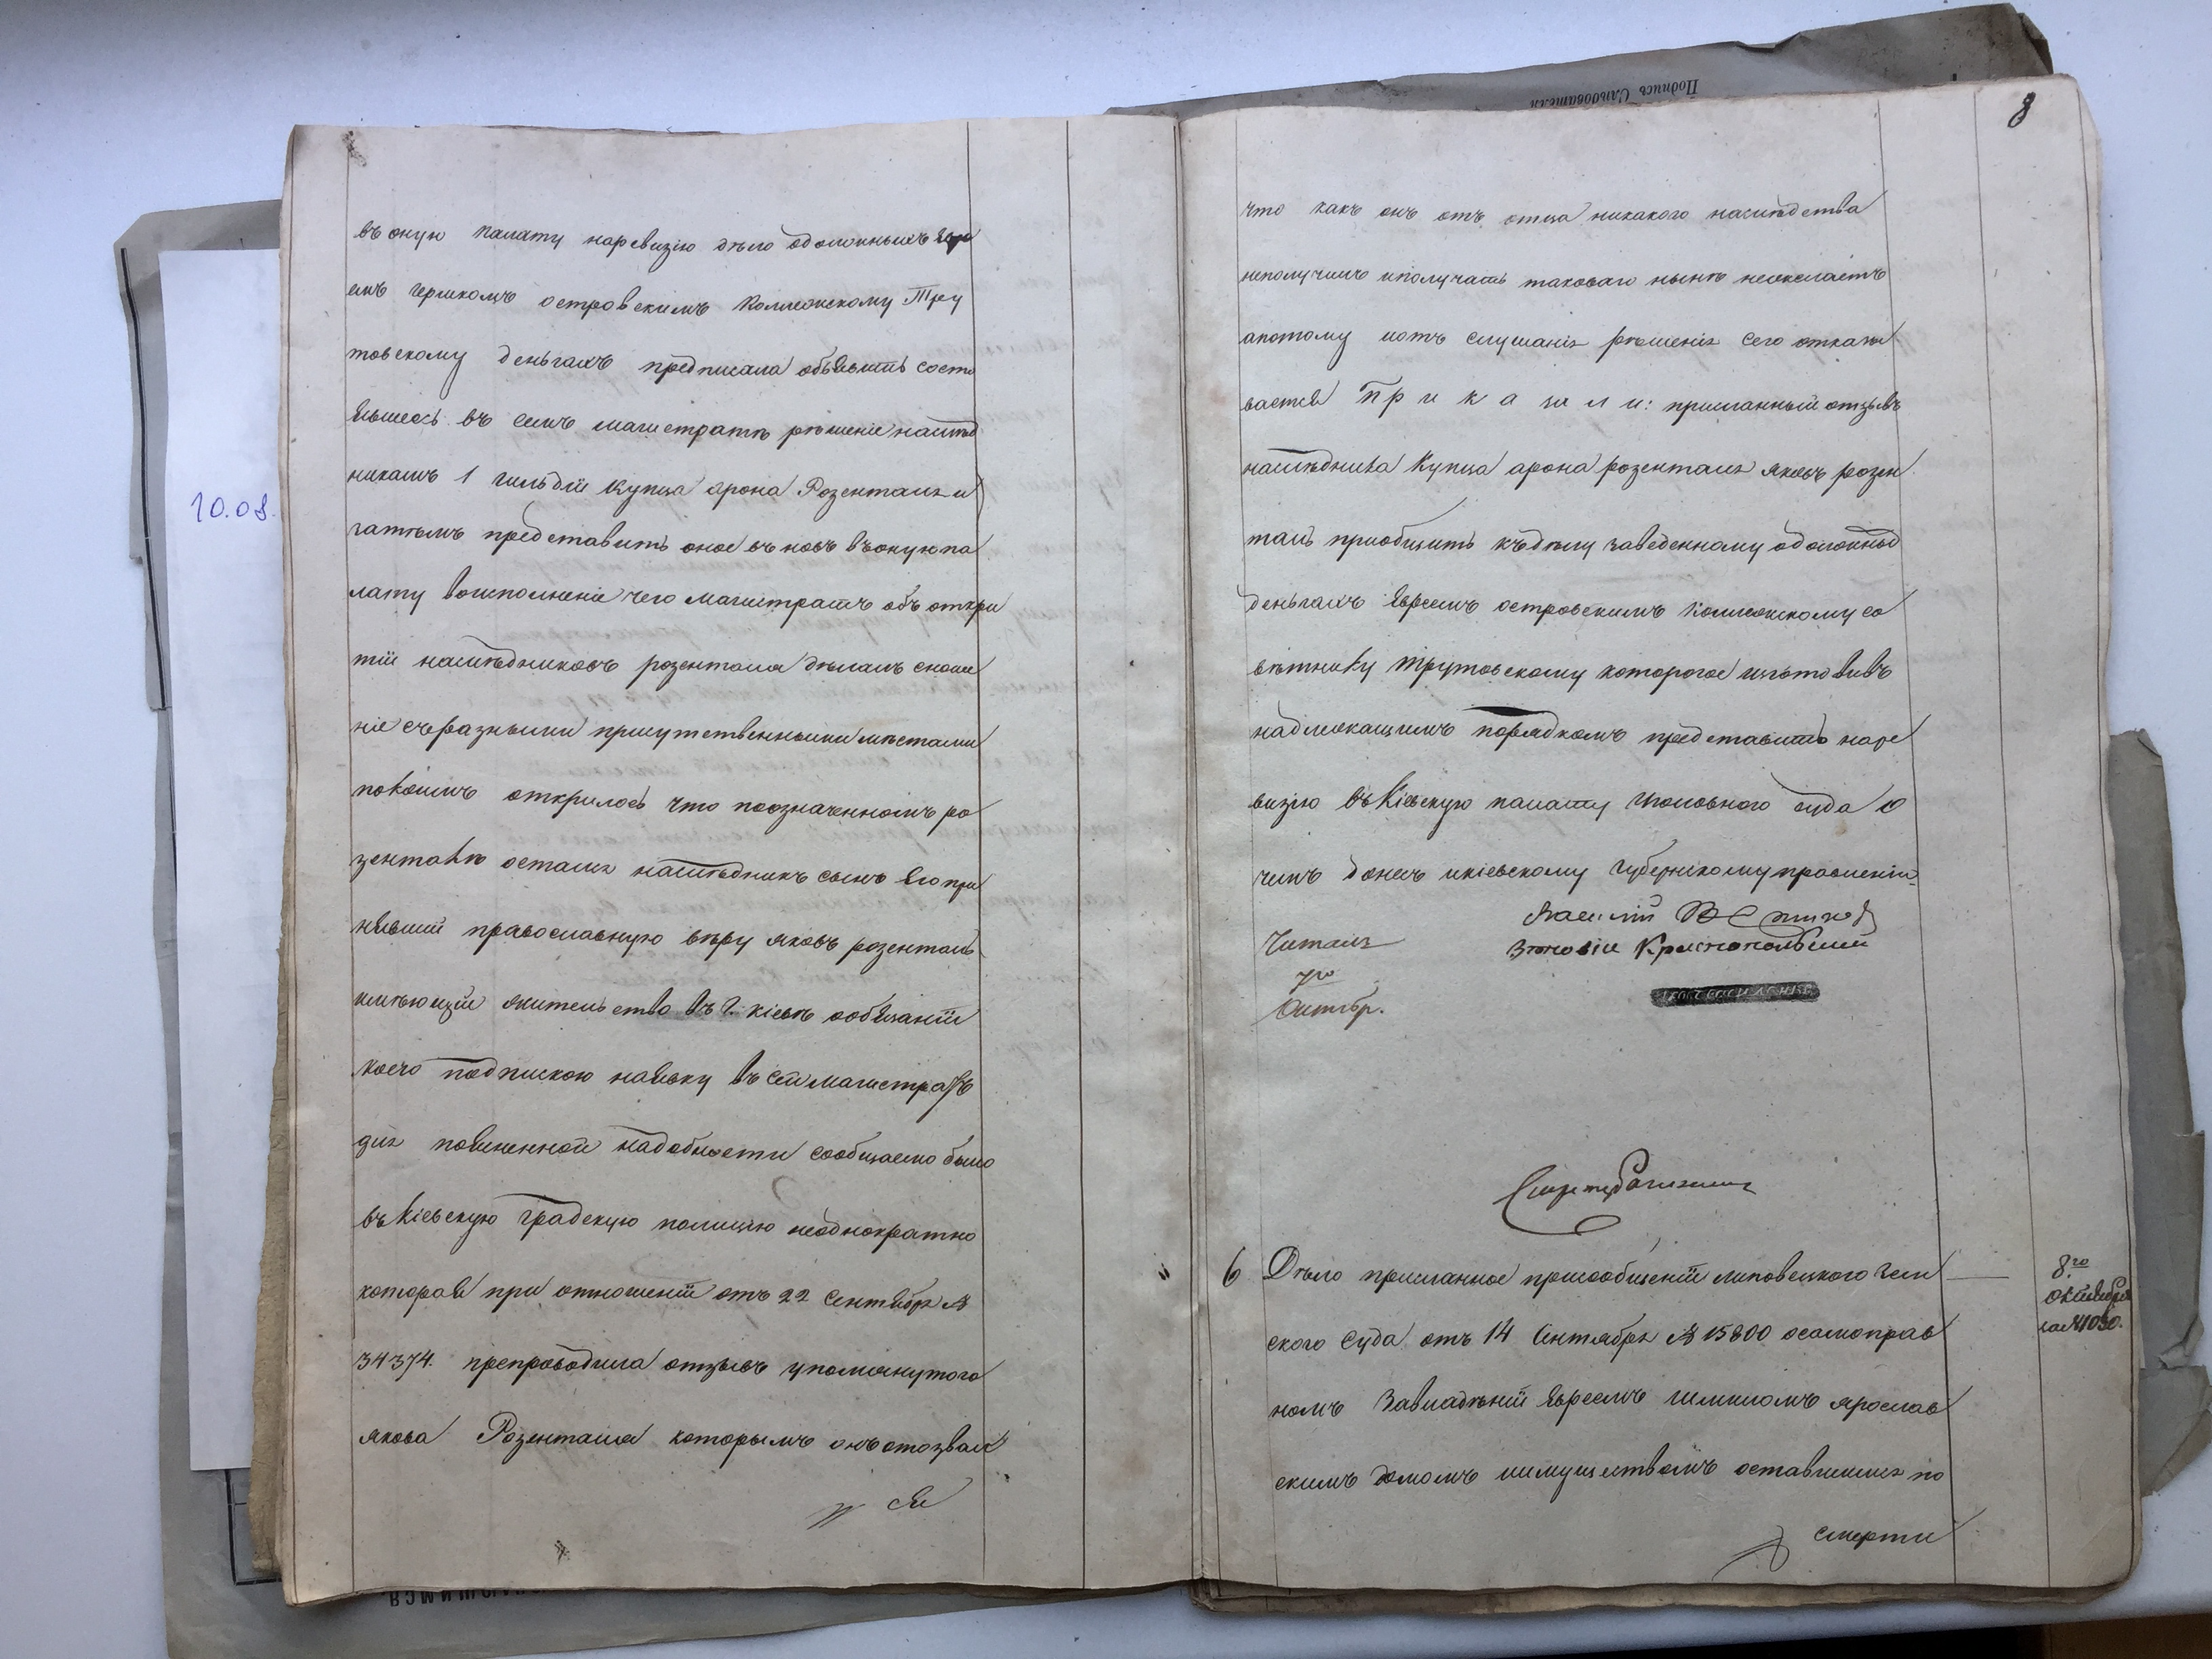 въ оную палату наревизію дѣло одолжныхъ Евре
емъ гершкомъ островскимъ Коллежскому Тру
товскому деньгахъ предписала объявить состо
явшееся въ семъ магистратѣ рѣшеніе наслѣд
никамъ 1 гильдіи купца арона Розенталя и
затѣмъ представить оное вновь въ оную па
лату воисполненіе чего магистратъ объ откры
тіи наслѣдниковъ розенталя дѣлалъ сноше
ніе съ разными присутственными мѣстами
по коимъ открилось что поозначенномъ ро
зенталѣ остался наслѣдникъ сынъ Его при
нявшій православную вѣру яковъ розенталь
имѣющій жительство въ г. кіевѣ ообязаніи
коего подпискою наявку въ сей магистратъ
для повышенной надобности сообщаемо было
въ Кіевскую градскую полицію неоднократно
которая при отношеніи отъ 22 Сентября №
34374. препроводила отзывъ упомянутого
якова Розенталя которымъ онъ отозвал
ся
8
что какъ онъ отъ отца никакого наслѣдства
неполучилъ иполучать таковаго нынѣ нежелаетъ
апотому иотъ слушанія рѣшенія сего отказы
вается Приказали: присланный отзывъ
наслѣдника Купца арона розенталя яковъ розен
таль приобщить къдѣлу заведенному одолжных
деньгахъ Евреемъ островскимъ Коллежскому со
вѣтнику Трутовскому которое изготовивъ
надлежащимъ порядкомъ представить наре
визію въ Кіевскую палату уголовного суда о
чемъ донесть икіевскому губернскому правленію
Василій
Читалъ
Зѣновіи Краснопольскій
7го
Октябр.
Секретарь
6 Дѣло присланное присообщеніи липовецкого зем
8.го
Октября
за №1090.
ского суда отъ 14 Сентября № 15800 осамоправ
номъ Завладѣніи Евреемъ шмиломъ ярослав
скимъ домомъ иимуществомъ оставшимся по
смерти
10.08.
Подпись Слѣдователя